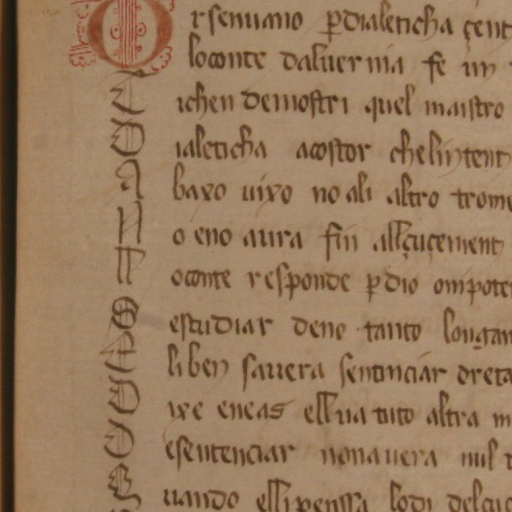 Or sen uano p dialeticha çent
lo conte daluernia fe un
E ichen demostri quel maistro
D ialeticha acostor chelintent
A baxo uixo no ali altro trome
N o eno aura fin allçuçement
T oconte responde p dio onipote
S estudiar deno tanto longam
E li ben sauera sentinciar dreta
D ixe eneas ell ua tuto altra m
D esentenciar nonauera nul
Q uando elli penssa lodi delçu